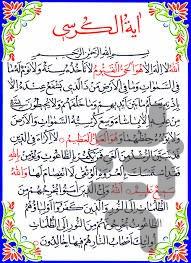 اية الكرسي
بسم الله الرحمن الرحيم
الله لا إله إلا هو الحي القيوم لا تأخذه سنة ولا نوم له ما
في السموات وما في الأرض من ذا الذي يشفع عنده إلا
بإذنه يعلم ما بين أيديهم وما خلفهم ولا يحيطون بشيء
من علمه إلا بما شاء وسع كرسيه السموات والأرض
ولا يؤده حفظهما وهو العلي العظيم لا إكراه في الدين
قد تبين الرشد من الغي فمن يكفر بالطاغوت ويؤمن بالله
فقد استمسك بالعروة الوثقى لا انفصام لها والله
سميع عليم الله ولي الذين آمنوا يخرجهم من
الظلمات إلى النور والذين كفروا أولياؤهم
الطاغوت يخرجونهم من النور إلى الظلمات
أولئك أصحاب النار هم فيها خالدون